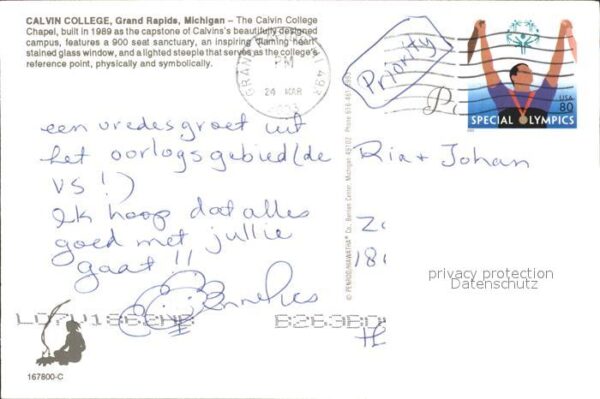 CALVIN COLLEGE, Grand Rapids, Michigan – The Calvin College
Chapel, built in 1989 as the capstone of Calvins's beautifully designed
campus, features a 900 seat sanctuary, an inspiring "flaming heart"
stained glass window, and a lighted steeple that serves as the college's
reference point, physically and symbolically.
GRAND RAPIDS
PM
24 MAR
2003
Priority
USA
80
SPECIAL OLYMPICS
een vredesgroet uit
het oorlogsgebied (de
VS!)
Ik hoop dat alles
goed met jullie
gaat!!
Ria + Johan
181
© PENROD/HIAWATHA® Co., Berrien Center, Michigan 49102
privacy protection
Datenschutz
167800-C